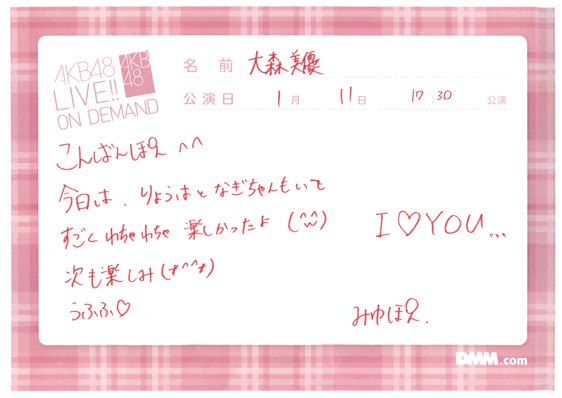 AKB48
LIVE!!
ON DEMAND
AKB
48
名 前 大森美優
公演日 1月 11日 17:30 公演
こんばんぽえ ^^
今日は、りょうはとなぎちゃんもいて
すごくわちゃわちゃ楽しかったよ (^ω^)
次も楽しみ(*^^*)
うふふ♡
I♡YOU...
みゆぽえ.
DMM.com